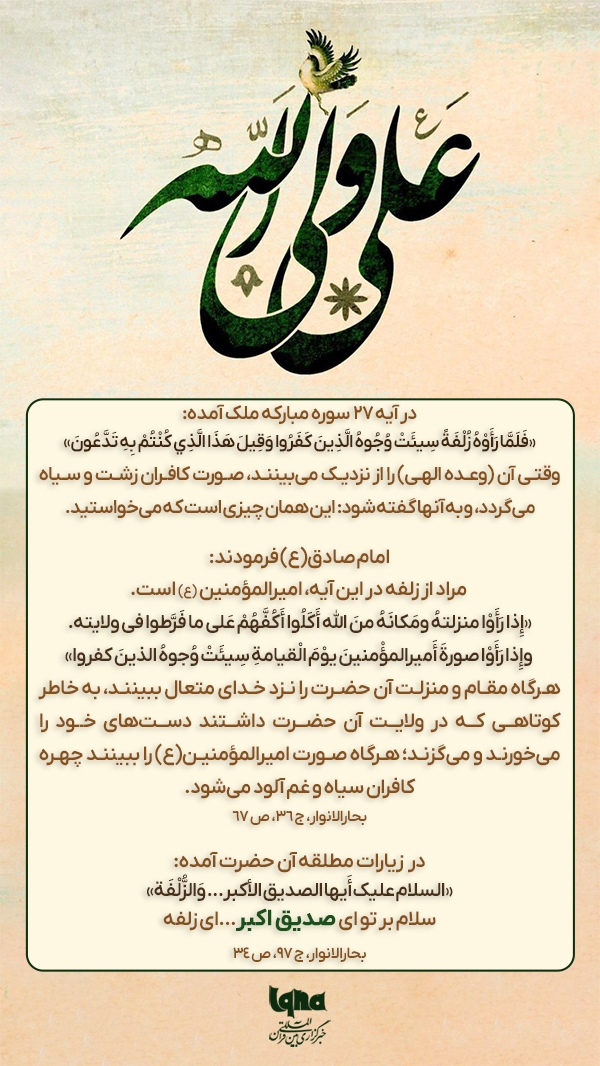 علی ولی الله
در آیه ۲۷ سوره مبارکه ملک آمده:
«فَلَمَّا رَأَوْهُ زُلْفَةً سِيئَتْ وُجُوهُ الَّذِينَ كَفَرُوا وَقِيلَ هَذَا الَّذِي كُنْتُمْ بِهِ تَدَّعُونَ»
وقتی آن (وعده الهی) را از نزدیک می‌بینند، صورت کافران زشت و سیاه
می‌گردد، و به آنها گفته شود: این همان چیزی است که می‌خواستید.
امام صادق(ع) فرمودند:
مراد از زلفه در این آیه، امیرالمؤمنین (ع) است.
«إِذا رَأَوْا منزلتهُ ومَکانَهُ منَ الله أَکَلُوا أَکُفَّهُمْ عَلی ما فَرَّطوا فی ولایته.
وإِذا رَأَوْا صورةَ أَمیرالمؤْمنینَ یوْمَ الْقیامةِ سِیئَتْ وُجوهُ الذینَ کفروا»
هرگاه مقام و منزلت آن حضرت را نزد خدای متعال ببینند، به خاطر
کوتاهی که در ولایت آن حضرت داشتند دست‌های خود را
می‌خورند و می‌گزند؛ هرگاه صورت امیرالمؤمنین(ع) را ببینند چهره
کافران سیاه و غم آلود می‌شود.
بحارالانوار، ج ۳۶، ص ۶۷
در زیارات مطلقه آن حضرت آمده:
«السلام علیک أَیها الصدیق الأکبر ... وَالزُّلْفَة»
سلام بر تو ای صدیق اکبر ... ای زلفه
بحارالانوار، ج ۹۷، ص ۳۴
Iqna
خبرگزاری بین المللی قرآن